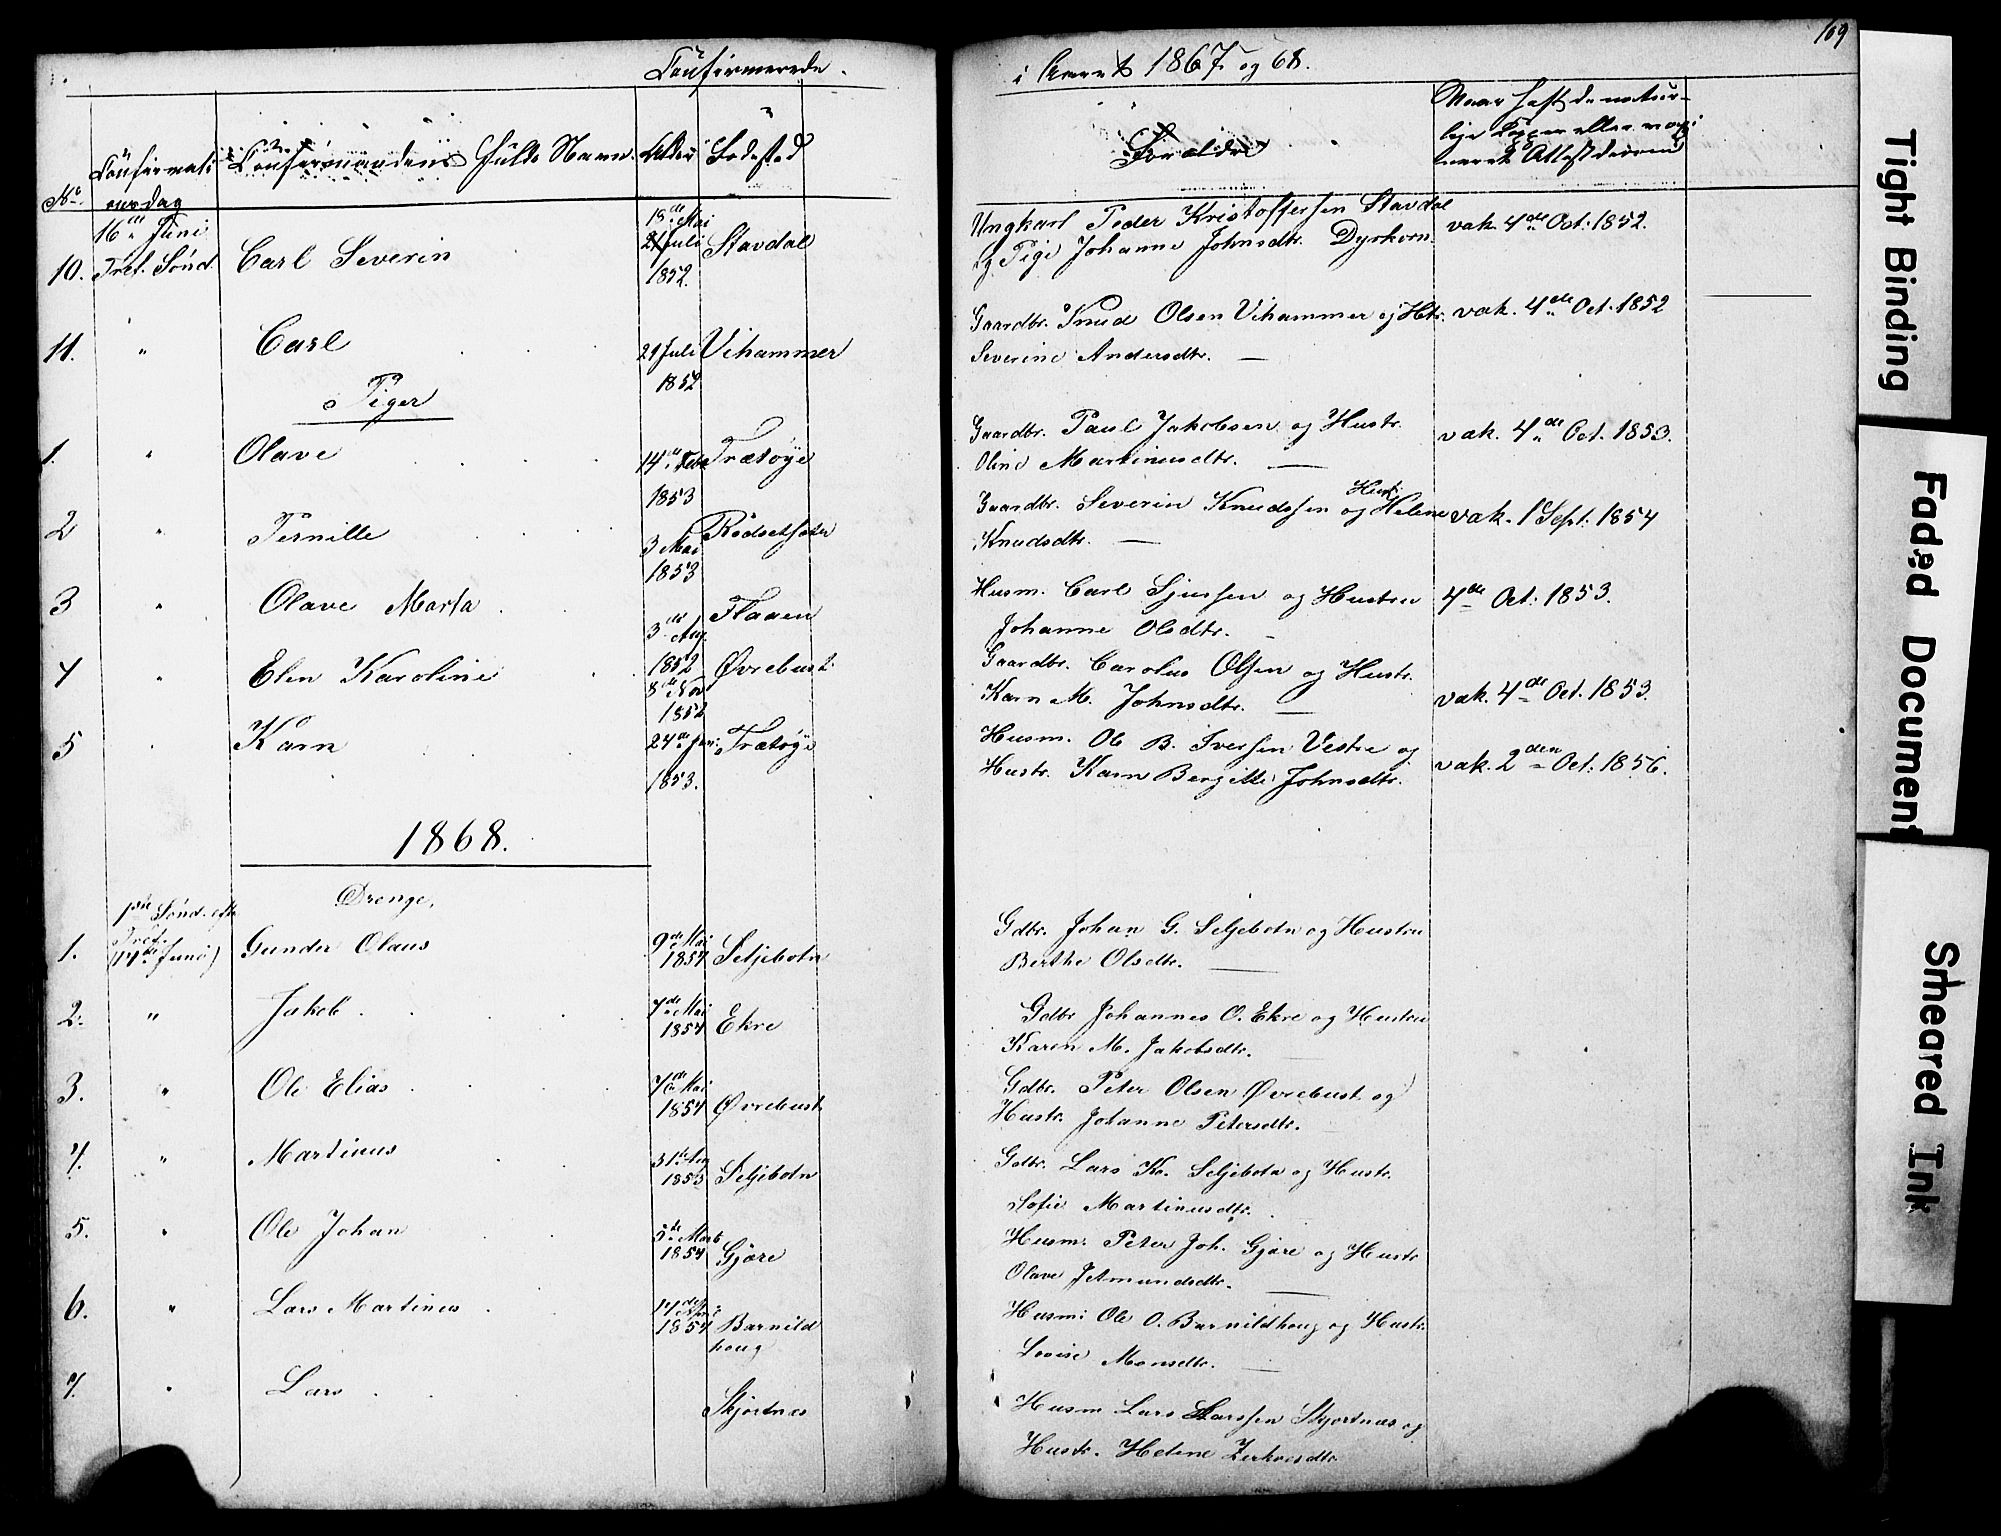 Confirmerede
i Aaret 1867 og 68.
109
No.
Confirmationsdag
Confirmandens fulde Navn
Alder
Fødested
Forældre
Naar haft de naturlige Kopper eller vaccineret & Attest derom
16de Juni
Tref. Sønd.
10. Carl Severin
18de Mai
21 Juli
1852.
Stavdal
Ungkarl Peder Kristoffersen Stavdal
og Pige Johanne Johnsdtr. Dyrkorn.
vak. 4de Oct: 1852.
11. " Carl
21 Juli
1852
Vihammer
Gaardbr. Knud Olsen Vihammer og Htr.
Severine Andersdtr. —
vak. 4de Oct. 1852
Piger
1. " Olave
14de Febr
1853
Trætøye
Gaardbr. Paul Jakobsen og Hustr.
Oline Martinusdtr. —
vak. 4de Oct. 1853.
2 " Pernille
3 Mai
1853
Rødsetsæter
Gaardbr. Severin Knudssen og Hustr. Helene
Knudsdtr. —
vak. 1 Sept: 1854
3 " Olave Marta
3de Aug.
1852
Flaaen
Husm. Carl Sjurssen og Hustru
Johanne Olsdtr. —
4de Oct: 1853.
4 " Elen Karoline
8de Nov
1852
Øvrebust.
Gaardbr. Carolus Olsen og Hustr.
Karn M. Johnsdtr. —
vak. 4de Oct. 1853.
5 " Karn
24de Jan:
1853.
Trætøye
Husm. Ole B. Iversen Vestre og
Hustr. Karn Bergitte Johnsdtr.
vak. 2den Oct: 1856.
1868.
Drenge.
1ste Sønd. efter
Tref.
(14de Juni)
1. Gunder Olaus
9de Mai
1854
Seljebotn
Gdbr. Johan G. Seljebotn og Hustru
Berthe Olsdtr. —
2. " Jakob
7de Mai
1854
Ekre
Gdbr Johannes O. Ekre og Hustru
Karen M. Jakobsdtr. —
3. " Ole Elias
7de Mai
1854
Øvrebust
Gdbr. Peter Olsen Øvrebust og
Hustr. Johanne Petersdtr. —
4. " Martinus
1853
Seljebotn
Gdbr. Lars Kn. Seljebotn og Hustr.
Sofie Martinusdtr. —
5. " Ole Johan
5te Marts
1854
Gjøre
Husm: Peter Joh. Gjøre og Hustr
Olave Jetmundsdtr. —
6. " Lars Martinus
14de April
1854
Barnild
houg
Husm: Ole O. Barnildhoug og Hustr.
Lovise Monsdtr. —
7. " Lars
Skjortnes
Husm Lars Larssen Skjortnes og
Hustr. Helene
Tight Binding
Faded Document
Smeared Ink